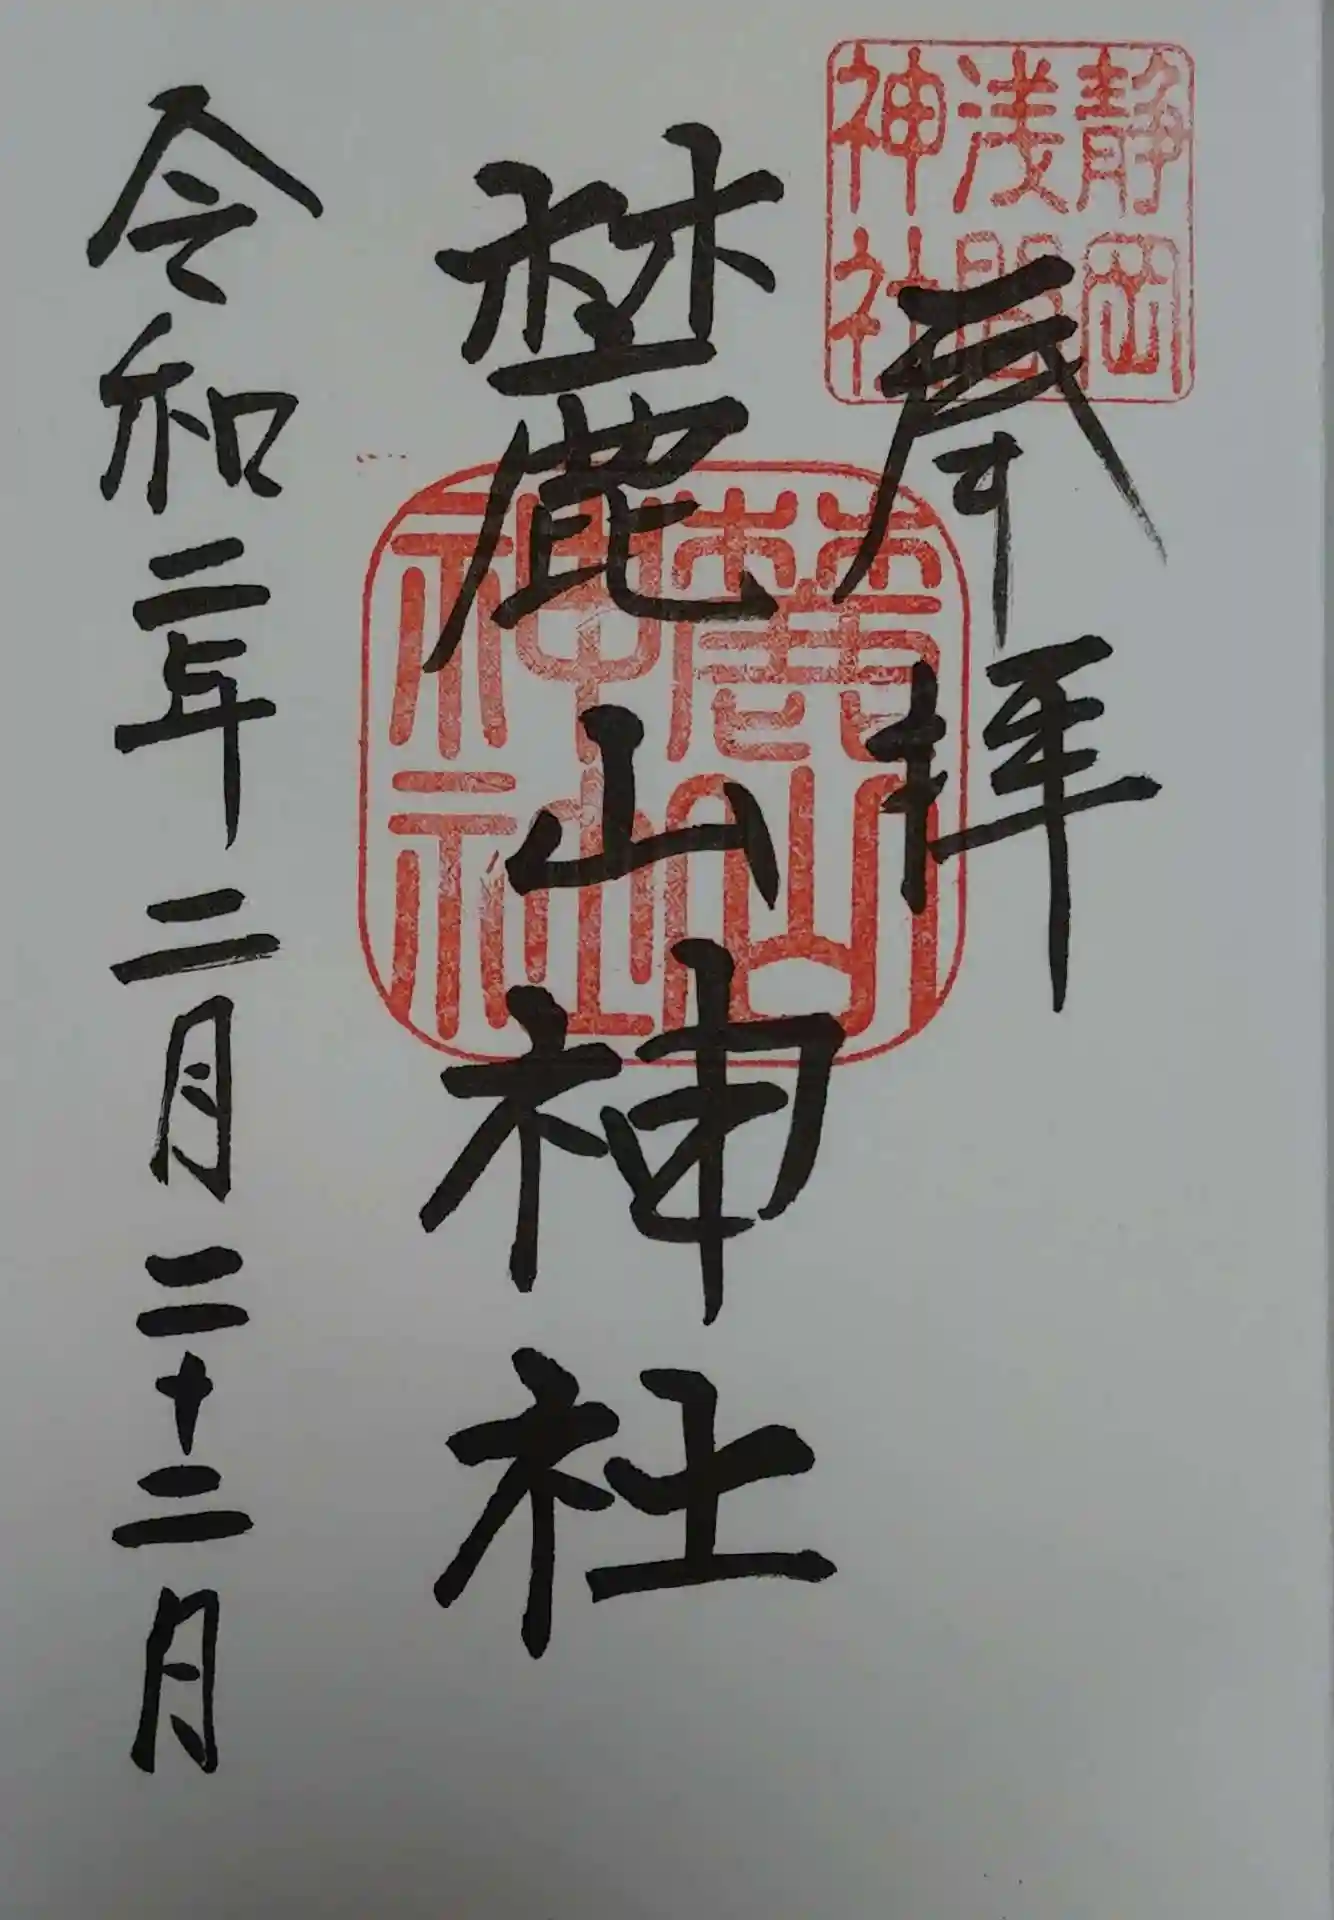 静岡
浅間
神社
奉拝
麓山
神社
麓山神社
令和二年二月二十二日